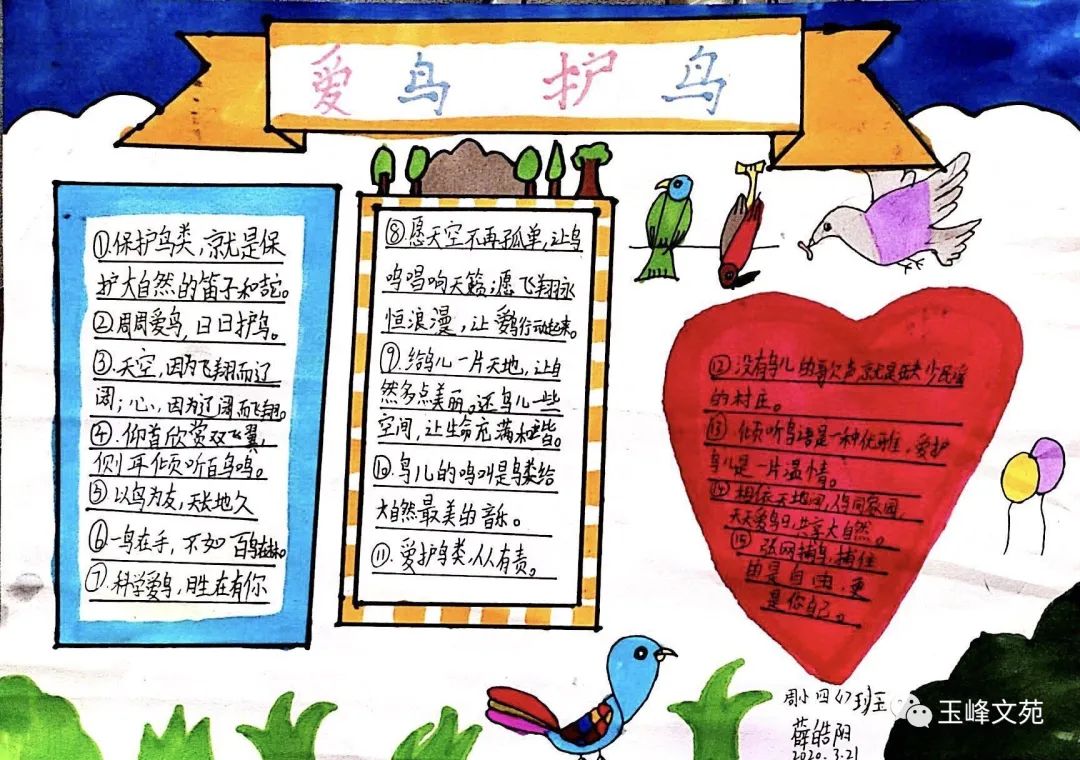 爱鸟 护鸟
①.保护鸟类,就是保
护大自然的笛子和
②.周周爱鸟,日日护鸟。
③.天空,因为飞翔而辽
阔;心,因为辽阔而飞翔。
④.仰首欣赏双飞翼,
侧耳倾听百鸟鸣。
⑤以鸟为友,天长地久
⑥一鸟在手,不如百鸟在林。
⑦.科学爱鸟,胜在有你
⑧.愿天空不再孤单,让鸟
鸣唱响天籁;愿飞翔永
恒浪漫,让爱鸟行动起来。
⑨.给鸟儿一片天地,让自
然多点美丽。还鸟儿一些
空间,让生命充满和谐。
⑩.鸟儿的鸣叫是鸟类给
大自然最美的音乐。
⑪.爱护鸟类,人人有责。
⑫.没有鸟儿的歌声,就是缺少民谣
的村庄。
⑬.倾听鸟语是一种优雅,爱护
鸟儿是一片温情。
⑭相依天地间,鸟同家园,
天天爱鸟日,共享大自然。
⑮.张网捕鸟,捕住
的是自由,更
是你自己。
周小四
薛皓阳
2020.3.21
玉峰文苑